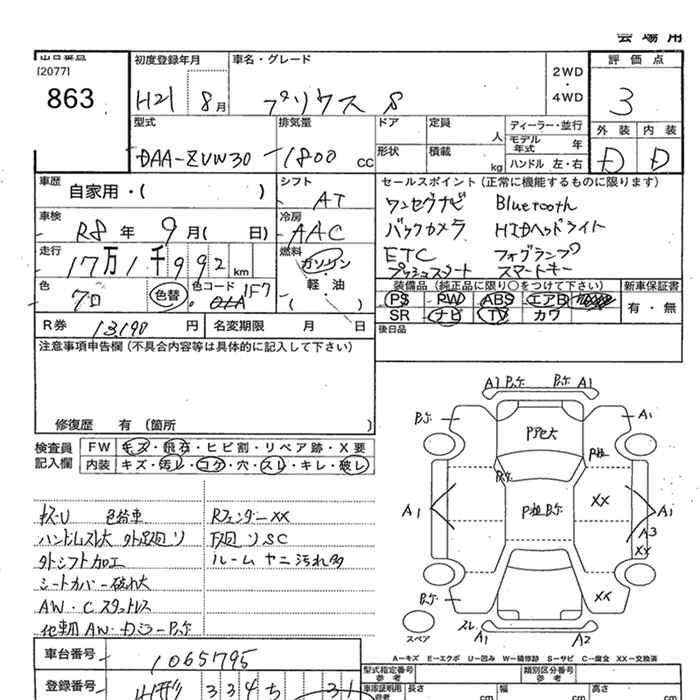 会場用
出品番号
[2077]
863
初度登録年月
H21 8月
車名・グレード
プリウス S
2WD
・
4WD
評価点
3
外装 内装
D D
型式
DAA-ZVW30
排気量
1800 cc
ドア
形状
定員
人
積載
kg
ディーラー・並行
モデル年式 年
ハンドル 左・右
車歴
自家用・( )
シフト
AT
車検
R8 年 9月( 日)
冷房
AAC
走行
17万1千992km
燃料
ガソリン
・
軽油
( )
色
クロ
色替
色コード 1F7
R券 13,190 円
名変期限 月 日
セールスポイント(正常に機能するものに限ります)
ワンセグナビ Bluetooth
バックカメラ HIDヘッドライト
ETC フォグランプ
プッシュスタート スマートキー
装備品(純正品に限り○をつけて下さい)
新車保証書
PS PW ABS エアB
SR ナビ TV カワ
有・無
後日品
注意事項申告欄(不具合内容等は具体的に記入して下さい)
修復歴 有 (箇所 )
検査員
記入欄
FW キズ・飛石・ヒビ割・リペア跡・X要
内装 キズ・汚レ・コゲ・穴・スレ・キレ・破レ
色替車 RフェンダーXX
下廻りSC
外シフト加工 ルームヤニ汚れ多
シートカバー破れ大
AW・Cスタットレス
A1 A1
A1
A1 A1
A3
XX
XX
XX
スレ
A1 A2
スペア
A=キズ E=エクボ U=凹み W=補修跡 S=サビ C=腐食 XX=交換済
車台番号
1065795
登録番号
山形 334 ち 31
型式指定番号
参考
類別区分番号
参考
車庫証明用
参考
長さ cm
幅 cm
高さ cm